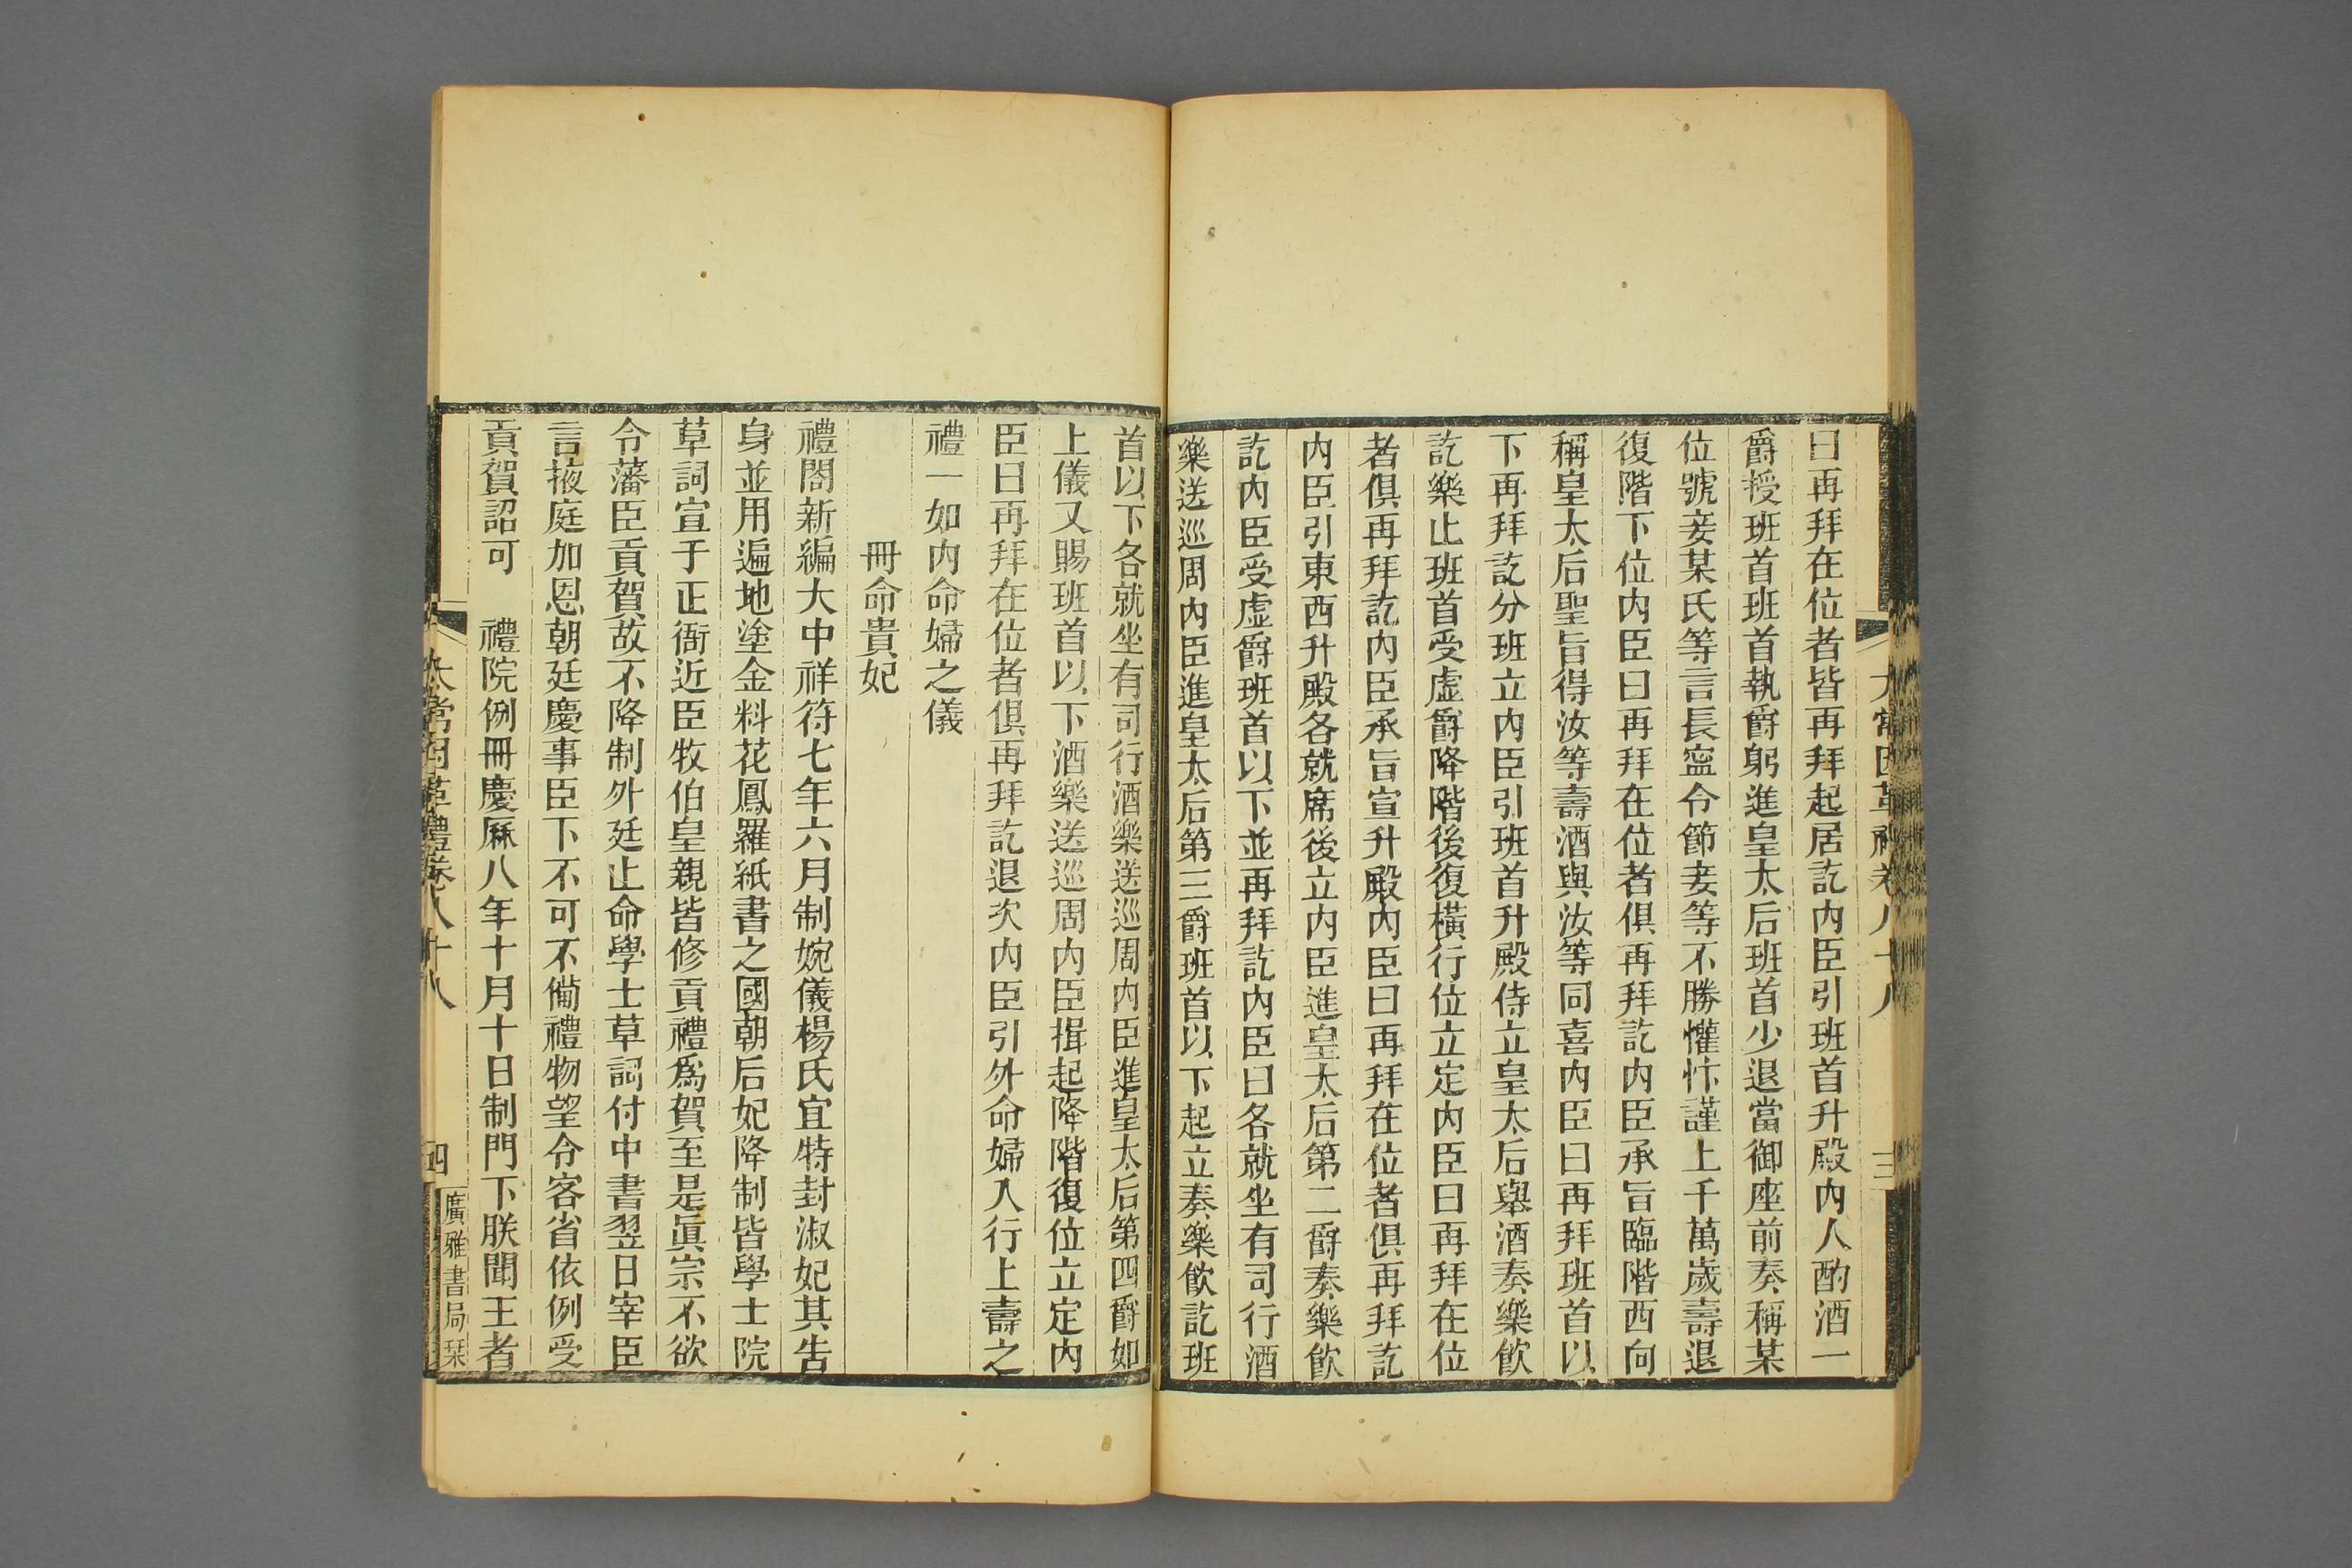 太常因革禮卷八十八
三
曰再拜在位者皆再拜起居訖內臣引班首升殿內人酌酒一
爵授班首班首執爵躬進皇太后班首少退當御座前奏稱某
位號妾某氏等言長寧令節妾等不勝懽忭謹上千萬歲壽退
復階下位內臣曰再拜在位者俱再拜訖內臣承旨臨階西向
稱皇太后聖旨得汝等壽酒與汝等同喜內臣曰再拜班首以
下再拜訖分班立內臣引班首升殿侍立皇太后舉酒奏樂飲
訖樂止班首受虛爵降階後復橫行位立定內臣曰再拜在位
者俱再拜訖內臣承旨宣升殿內臣曰再拜在位者俱再拜訖
內臣引東西升殿各就席後立內臣進皇太后第二爵奏樂飲
訖內臣受虛爵班首以下並再拜訖內臣曰各就坐有司行酒
樂送巡周內臣進皇太后第三爵班首以下起立奏樂飲訖班
首以下各就坐有司行酒樂送巡周內臣進皇太后第四爵如
上儀又賜班首以下酒樂送巡周內臣揖起降階復位立定內
臣曰再拜在位者俱再拜訖退次內臣引外命婦入行上壽之
禮一如內命婦之儀
冊命貴妃
禮閣新編大中祥符七年六月制婉儀楊氏宜特封淑妃其告
身並用遍地塗金料花鳳羅紙書之國朝后妃降制皆學士院
草詞宣于正衙近臣牧伯皇親皆修貢禮爲賀至是眞宗不欲
令藩臣貢賀故不降制外廷止命學士草詞付中書翌日宰臣
言掖庭加恩朝廷慶事臣下不可不備禮物望令客省依例受
貢賀詔可　禮院例冊慶厤八年十月十日制門下朕聞王者
太常因革禮卷八十八
四
廣雅書局栞